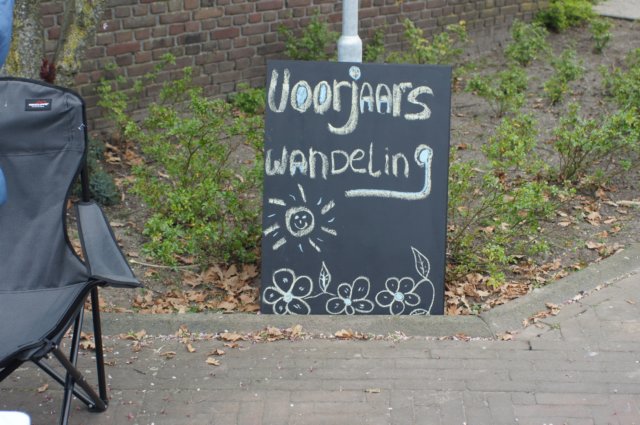 Voorjaars
wandeling